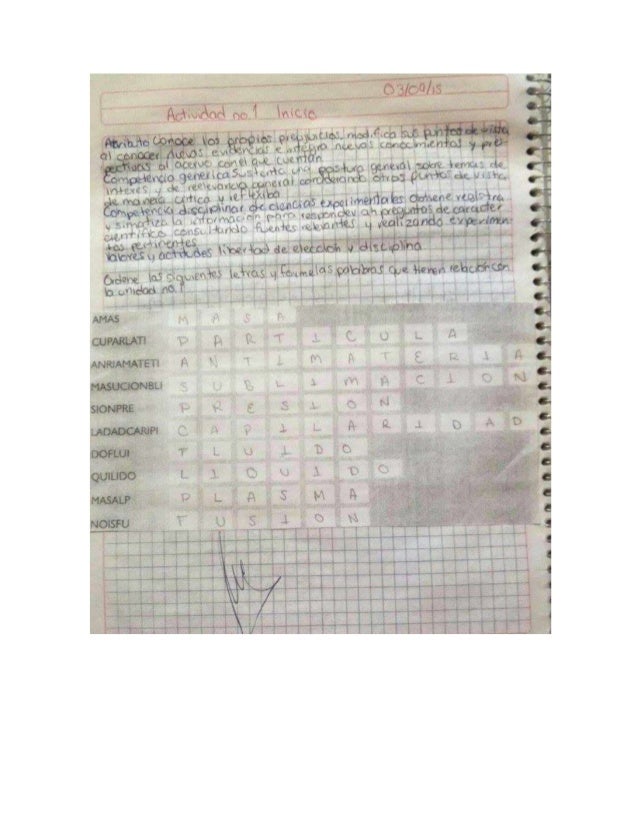 03/00/15
Actividad no.1 Inicio
Atributo Conoce los propios prejuicios, modifica sus puntos de vista
al conocer nuevas evidencias e integra nuevos conocimientos y pre
pectivas al acervo con el que cuentan
Competencia generica Sustenta una postura general sobre temas de
interes y de reelevancia general considerando otros puntos de vista
de manera critica y reflexiba
Competencia disciplinar de ciencias experimentales obtiene registra
y simatiza la información para responder ah preguntas de caracter
cientifico consultando fuentes relevantes y realizando experimen
tos pertinentes
Valores y actitudes libertad de elección y disciplina
Ordene las siguientes letras y forme las palabras que tienen relación con
la unidad no.1
AMAS M A S A
CUPARLATI P A R T I C U L A
ANRIAMATETI A N T I M A T E R I A
MASUCIONBLI S U B L I M A C I O N
SIONPRE P R E S I O N
LADADCARIPI C A P I L A R I D A D
DOFLUI F L U I D O
QUILIDO L I Q U I D O
MASALP P L A S M A
NOISFU F U S I O N